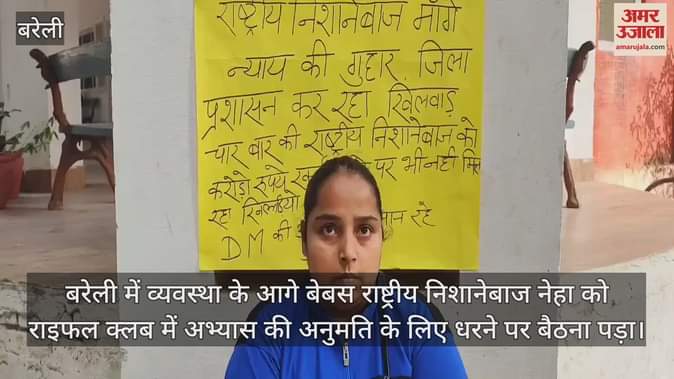 बरेली
अमर
उजाला
amarujala.com
राष्ट्रीय निशानेबाज माँगे
न्याय की गुहार, जिला
प्रशासन कर रहा खिलवाड़
चार बार की राष्ट्रीय निशानेबाज को
करोड़ो रुपये पर भी नही मिल
रहा
DM की रहे
बरेली में व्यवस्था के आगे बेबस राष्ट्रीय निशानेबाज नेहा को
राइफल क्लब में अभ्यास की अनुमति के लिए धरने पर बैठना पड़ा।